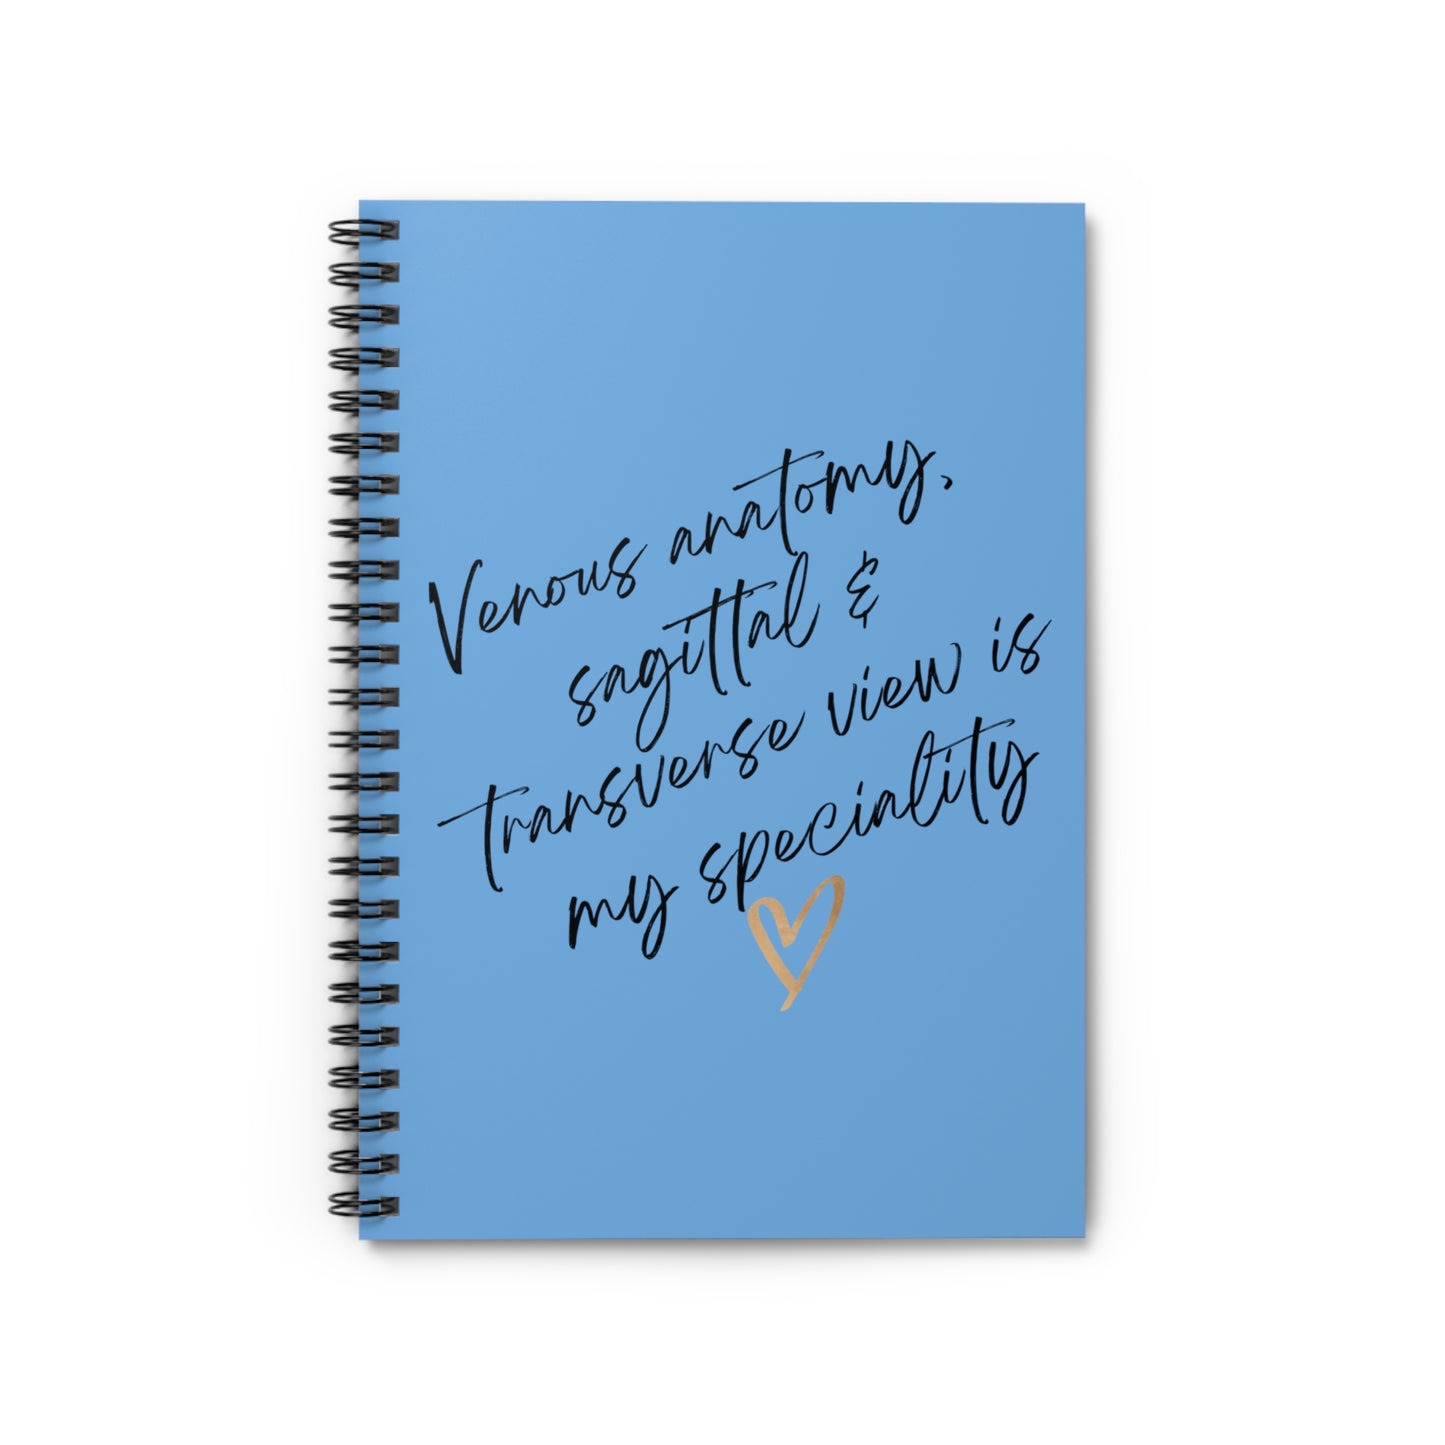 Venous anatomy,
sagittal &
transverse view is
my speciality